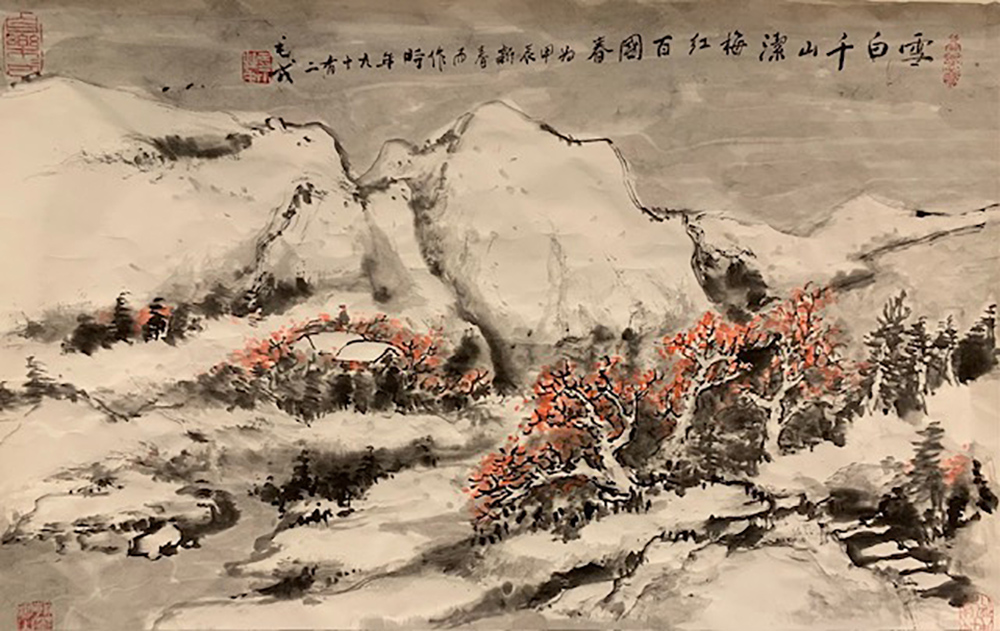 雪白千山潔梅紅百國春為甲辰新春而作時年九十有二